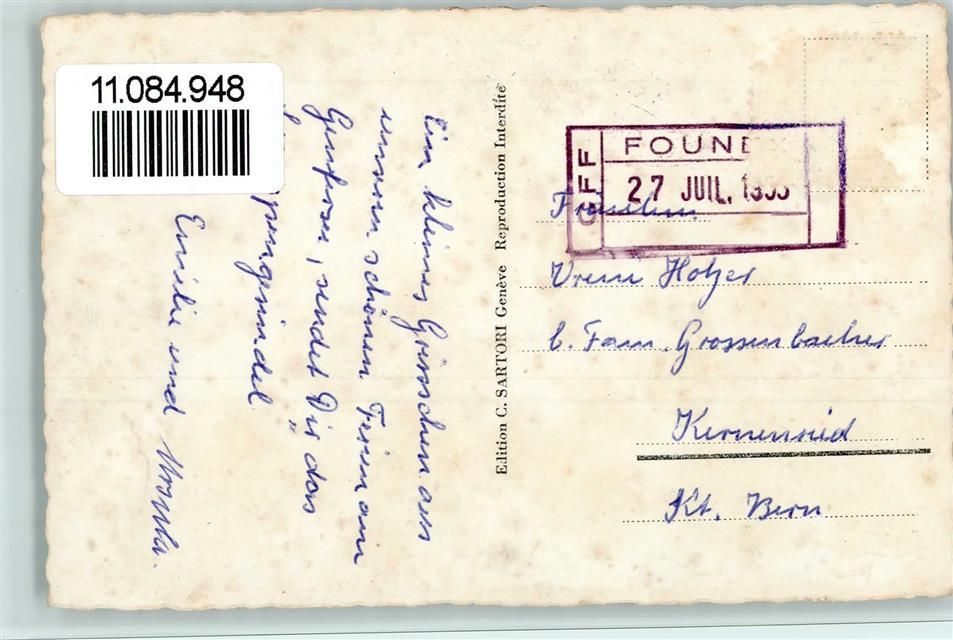 11.084.948
Ein kleines Grüsschen aus
unseren schönen Ferien am
Genfersee, sendet Dir das
"
pengsindel
Emilie und Ursula.
Edition C. SARTORI Genève Reproduction Interdite
CFF
FOUNE
27 JUIL. 19
Fräulein
Vreni Hotzer
b. Fam. Grossenbacher
Kernenried
Kt. Bern